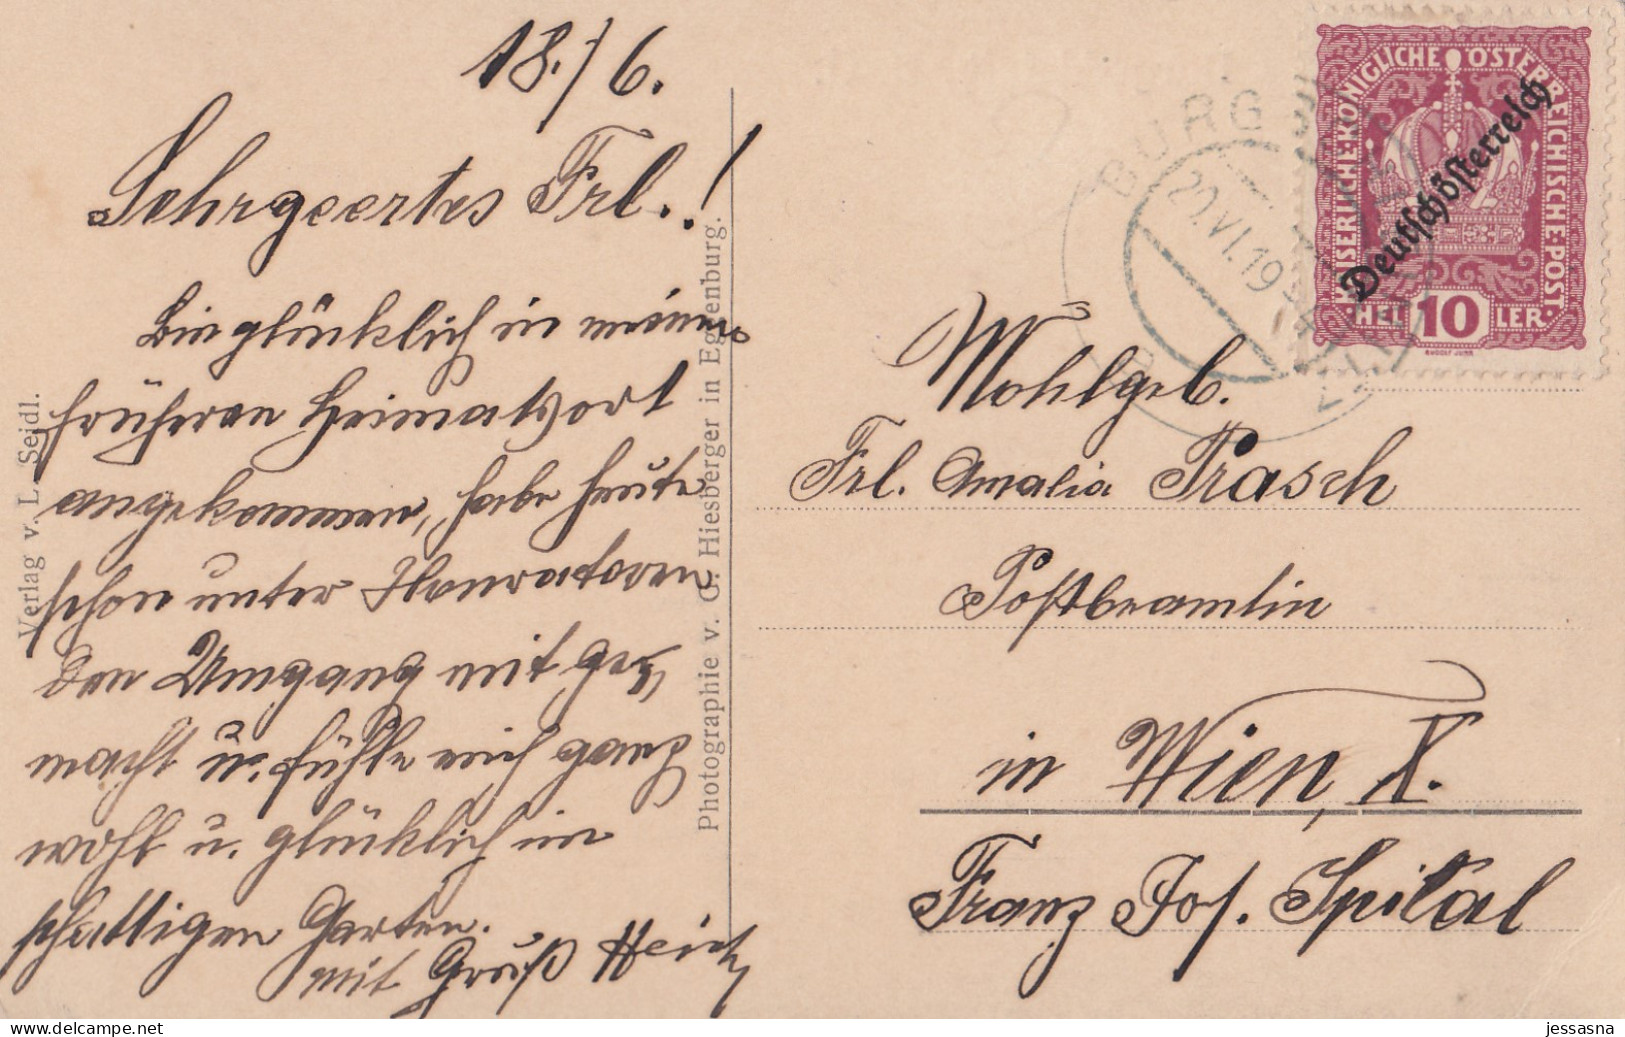 18./6.
Sehrgeertes Frl.!
Bin glücklich in meinem
früheren Heimatsort
angekommen, habe heute
schon unter Honoratoren
den Umgang mit ge-
macht u. fühle mich ganz
wohl u. glücklich im
schattigen Garten.
mit Gruß
Verlag v. L. Seidl.
Photographie v. G. Hiesberger in Eggenburg.
KAISERLICHE·KÖNIGLICHE ÖSTERREICHISCHE·POST·
Deutschösterreich
HEL 10 LER
RUDOLF JUNK
BURG
20.VI.19
Wohlgeb.
Frl. Amalia Prasch
Postbeamtin
in Wien, X.
Franz Jos. Spital
jessasna